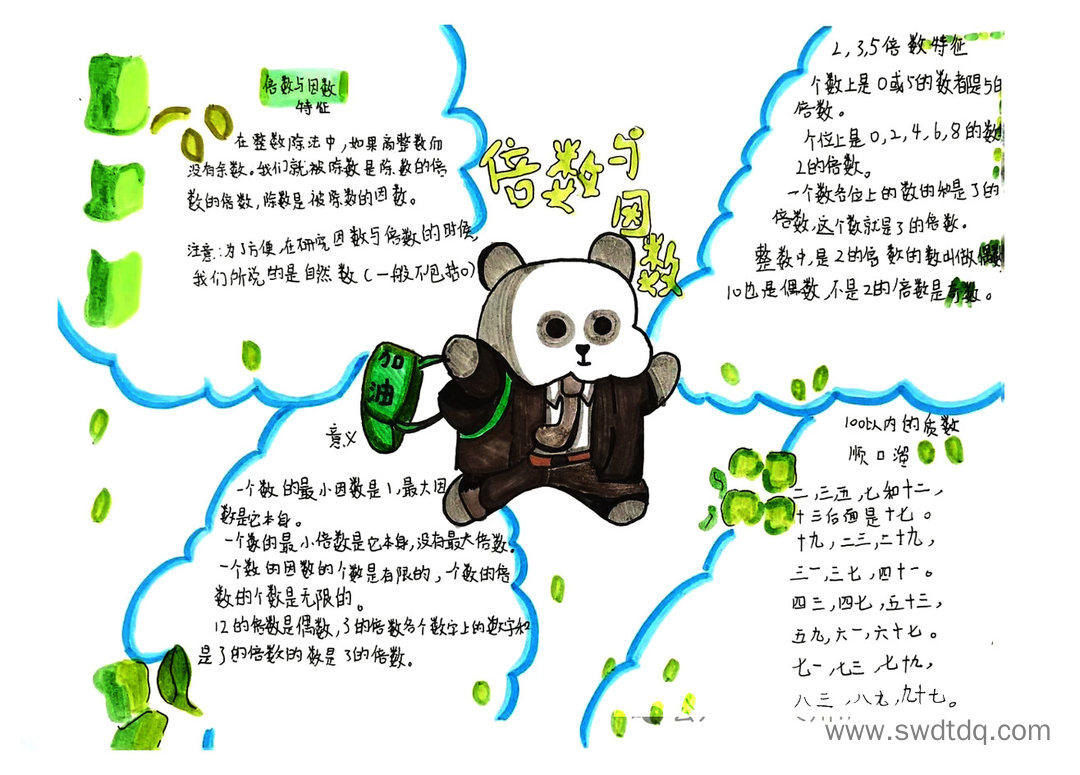 倍数与因数
倍数与因数
特征
在整数除法中,如果商整数而
没有余数。我们就被除数是除数的倍
数的倍数,除数是被除数的因数。
注意:为了方便,在研究因数与倍数的时候,
我们所说的是自然数(一般不包括0)
2,3,5倍数特征
个数上是0或5的数都是5的
倍数。
个位上是0,2,4,6,8的数
2的倍数。
一个数各位上的数的和是3的
倍数,这个数就是3的倍数。
整数中,是2的倍数的数叫做偶数
10也是偶数,不是2的倍数是奇数。
加
油
意义
一个数的最小因数是1,最大因
数是它本身。
一个数的最小倍数是它本身,没有最大倍数。
一个数的因数的个数是有限的,一个数的倍
数的个数是无限的。
12的倍数是偶数,3的倍数各个数字上的数字和
是3的倍数的数是3的倍数。
100以内的质数
顺口溜
二,三五,七和十二,
十三后面是十七。
十九,二三,二十九,
三一,三七,四十一。
四三,四七,五十三,
五九,六一,六十七。
七一,七三,七十九,
八三,八九,九十七。
www.swdtdq.com